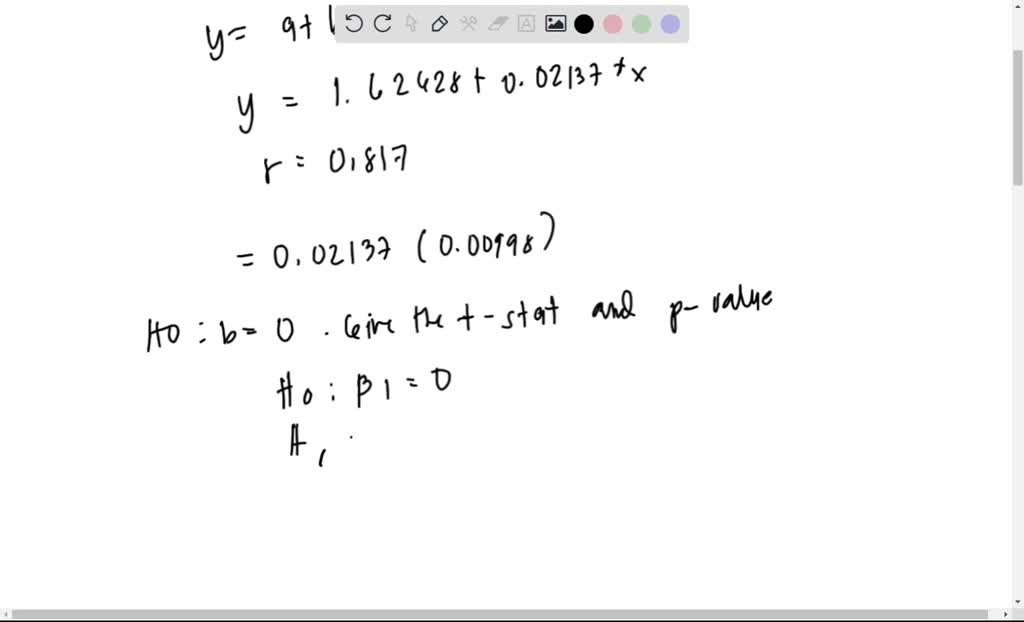 y= a+
y = 1.62428+ 0.02137 * x
r = 0.817
= 0.02137 (0.00998)
H0 : b= 0 . Give the t-stat and p-value
H0 : β1 = 0
H1